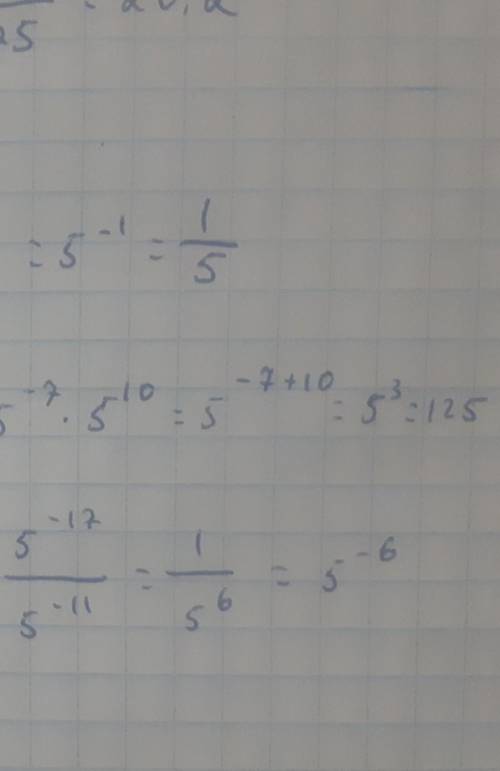 25
= 5^-1 = 1/5
5^-7 · 5^10 = 5^-7+10 = 5^3 = 125
5^-17/5^-11 = 1/5^6 = 5^-6